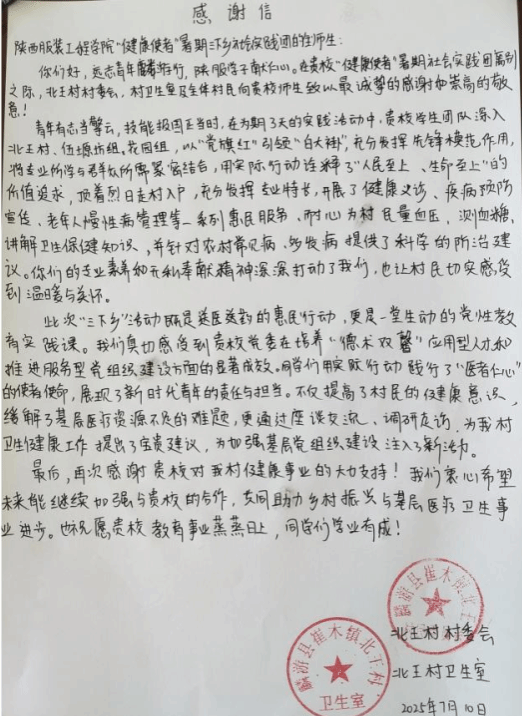 感谢信
陕西服装工程学院“健康使者”暑期三下乡社会实践团的全体师生：
你们好，远志青年麟游行，陕服学子献仁心。在贵校“健康使者”暑期社会实践团离别
之际，北王村村委会，村卫生室及全体村民向贵校师生致以最诚挚的感谢和崇高的敬
意！
青年有志当擎云，技能报国正当时，在为期7天的实践活动中，贵校学生团队深入
北王村、伍塬坊组、花园组，以“党旗红”引领“白大褂”，充分发挥先锋模范作用，
将专业所学与群众所需紧密结合，用实际行动诠释了“人民至上、生命至上”的
价值追求，顶着烈日走村入户，充分发挥专业特长，开展了健康义诊、疾病预防
宣传、老年人慢性病管理等一系列惠民服务，耐心为村民量血压，测血糖，
讲解卫生保健知识，并针对农村常见病、多发病提供了科学的防治建
议。你们的专业素养和无私奉献精神深深打动了我们，也让村民切实感受
到温暖与关怀。
此次“三下乡”活动既是送医送药的惠民行动，更是一堂生动的党性教
育实践课。我们真切感受到贵校党委在培养“德术双馨”应用型人才和
推进服务型党组织建设方面的显著成效。同学们用实际行动践行了“医者仁心”
的使者使命，展现了新时代青年的责任与担当。不仅提高了村民的健康意识，
缓解了基层医疗资源不足的难题，更通过座谈交流、调研走访，为我村
卫生健康工作提出了宝贵建议，为加强基层党组织建设注入了新活力。
最后，再次感谢贵校对我村健康事业的大力支持！我们衷心希望
未来能继续加强与贵校的合作，共同助力乡村振兴与基层医疗卫生事
业进步。也祝愿贵校教育事业蒸蒸日上，同学们学业有成！
北王村村委会
麟游县崔木镇北王村
卫生室
北王村卫生室
2025年7月10日